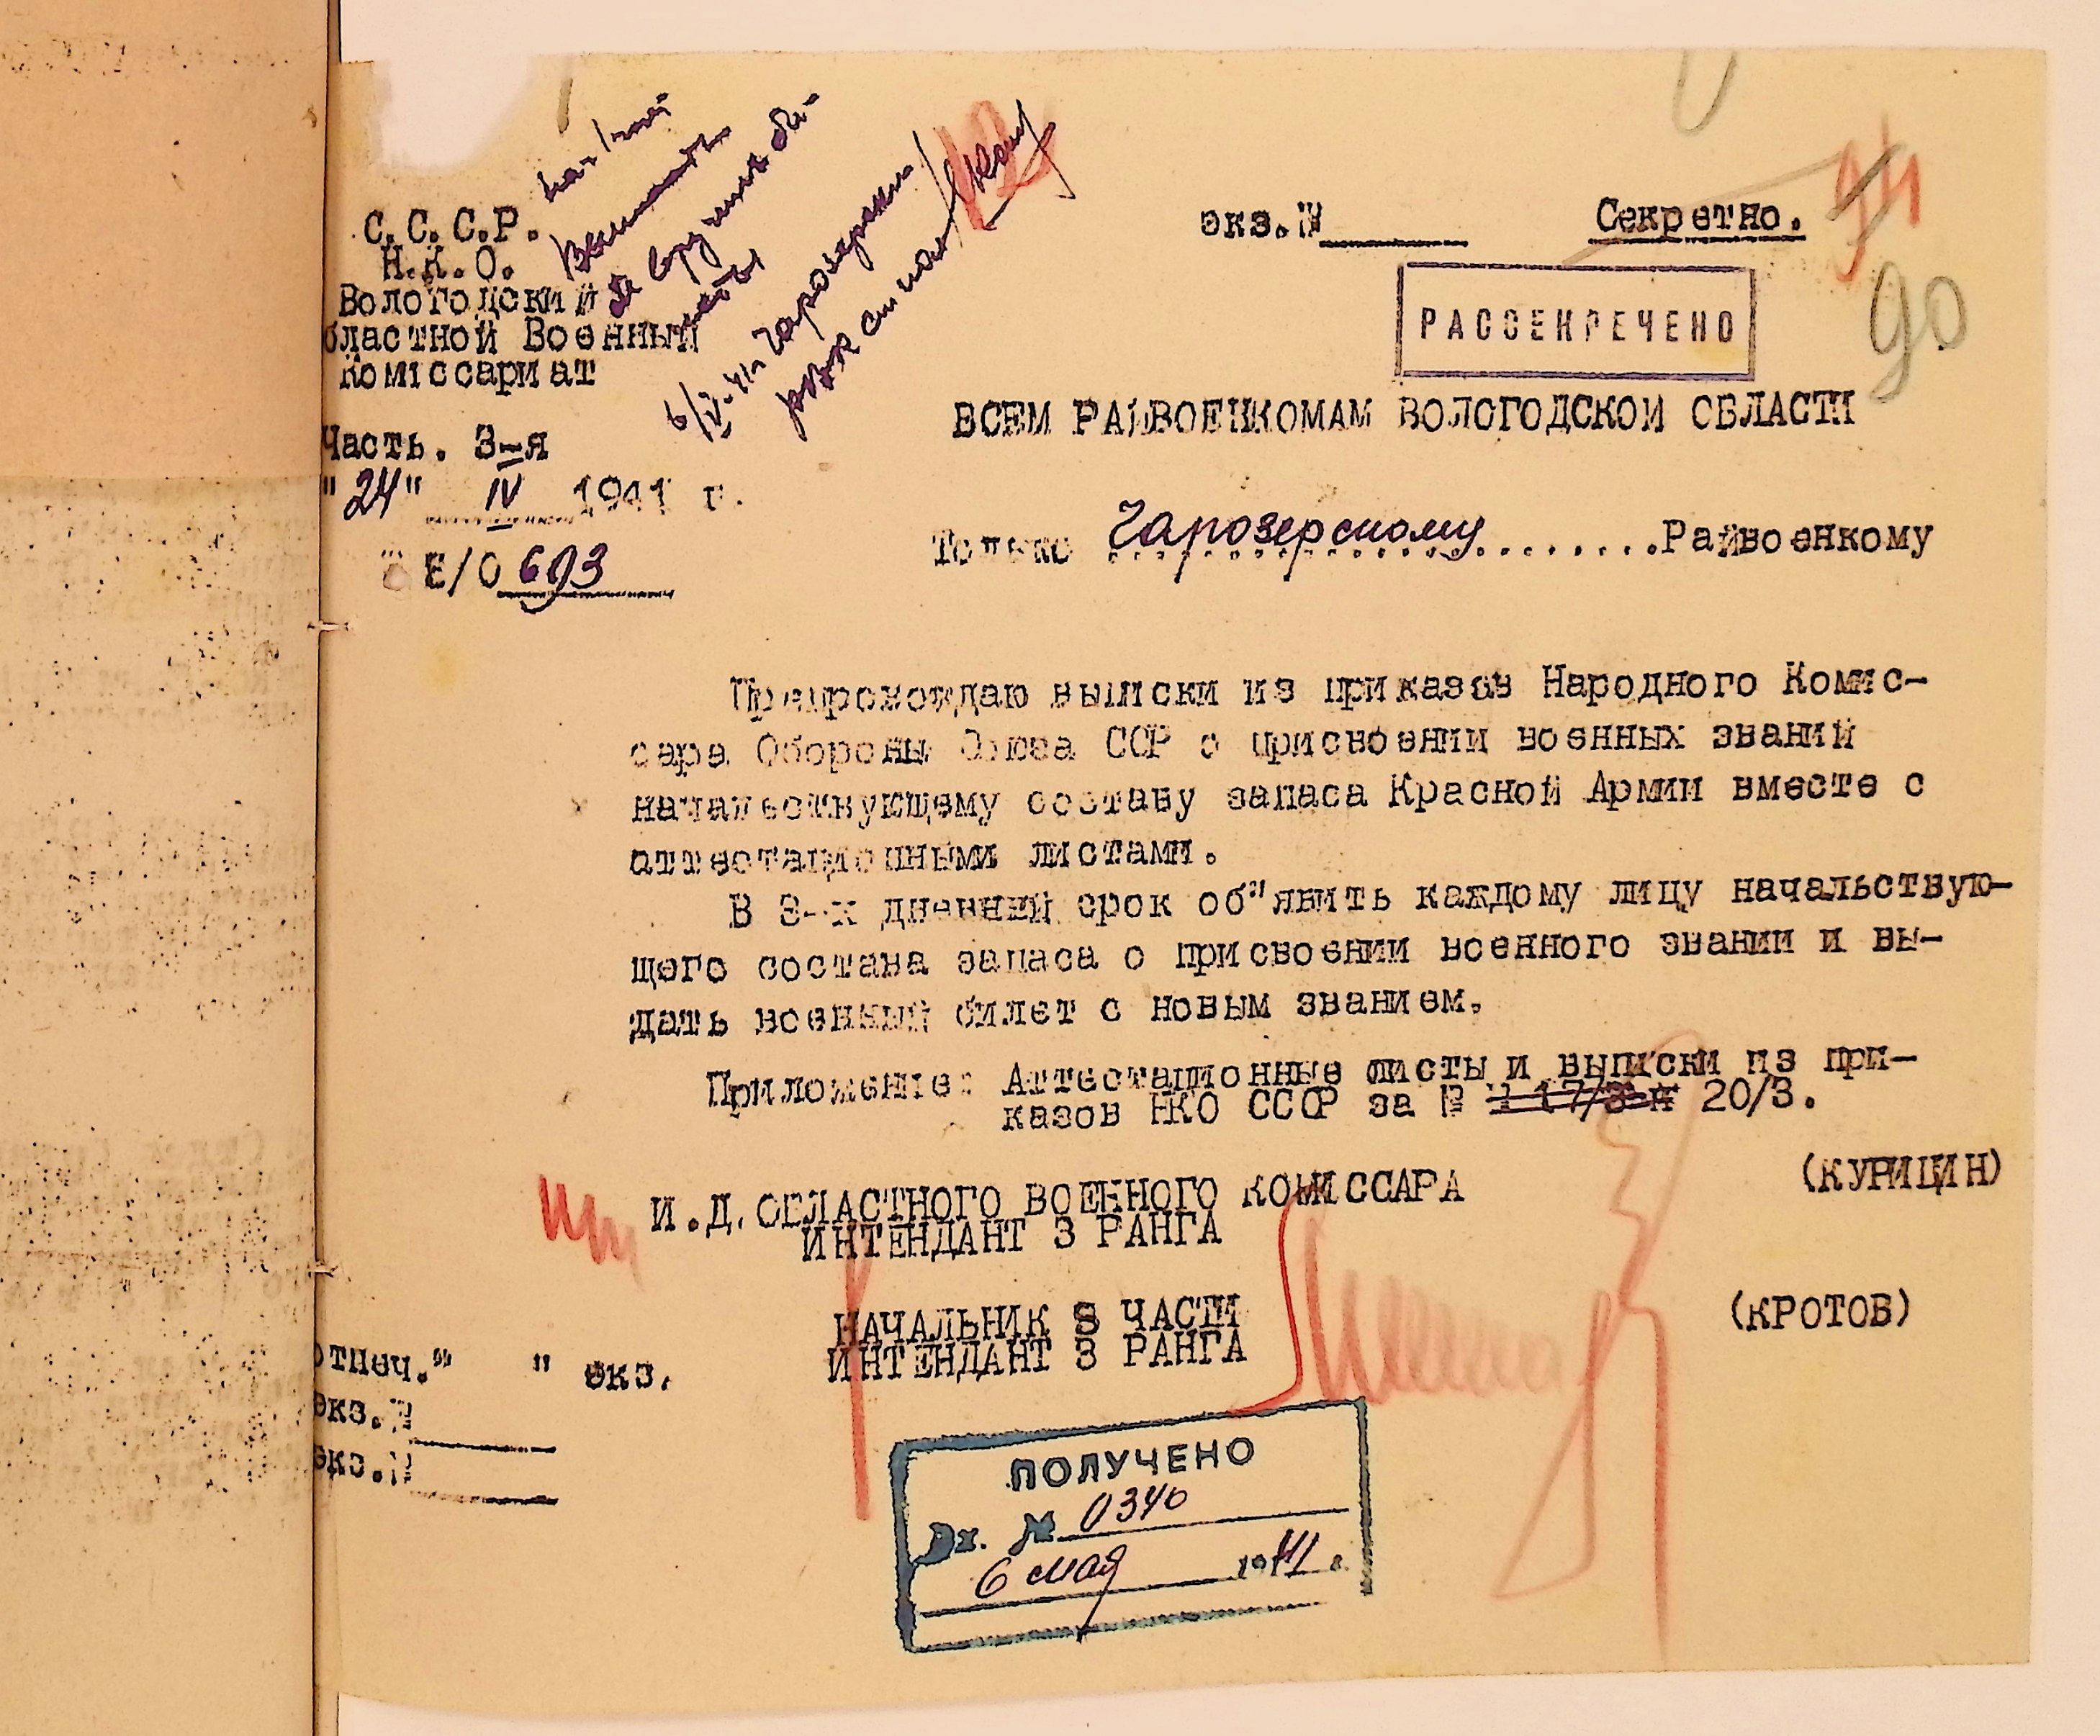 С.С.С.Р.
Н.К.О.
Вологодский
бластной Военный
Коміссариат
Часть. 3-я
"24" IV 1941 г.
Е/О 693
экз.№
Секретно.
РАССЕКРЕЧЕНО
90
ВСЕМ РАЙВОЕНКОМАМ ВОЛОГОДСКОЙ ОБЛАСТИ
Только Чарозерскому Райвоенкому
Препровождаю выписки из приказов Народного Комис-
сара Обороны Союза ССР о присвоении военных званий
начальствующему составу запаса Красной Армии вместе с
аттестационными листами.
В 3-х дневный срок об"явить каждому лицу начальствую-
щего состава запаса о присвоении военного звании и вы-
дать военный билет с новым званием.
Приложение: Аттестационные листы и выписки из при-
казов НКО СССР за № 20/3.
И.Д. ОБЛАСТНОГО ВОЕННОГО КОМИССАРА (КУРИЦИН)
ИНТЕНДАНТ 3 РАНГА
НАЧАЛЬНИК 3 ЧАСТИ (КРОТОВ)
ИНТЕНДАНТ 3 РАНГА
отпеч." " экз.
экз.№
экз.№
ПОЛУЧЕНО
Вх. № 0346
6 мая 1941 г.